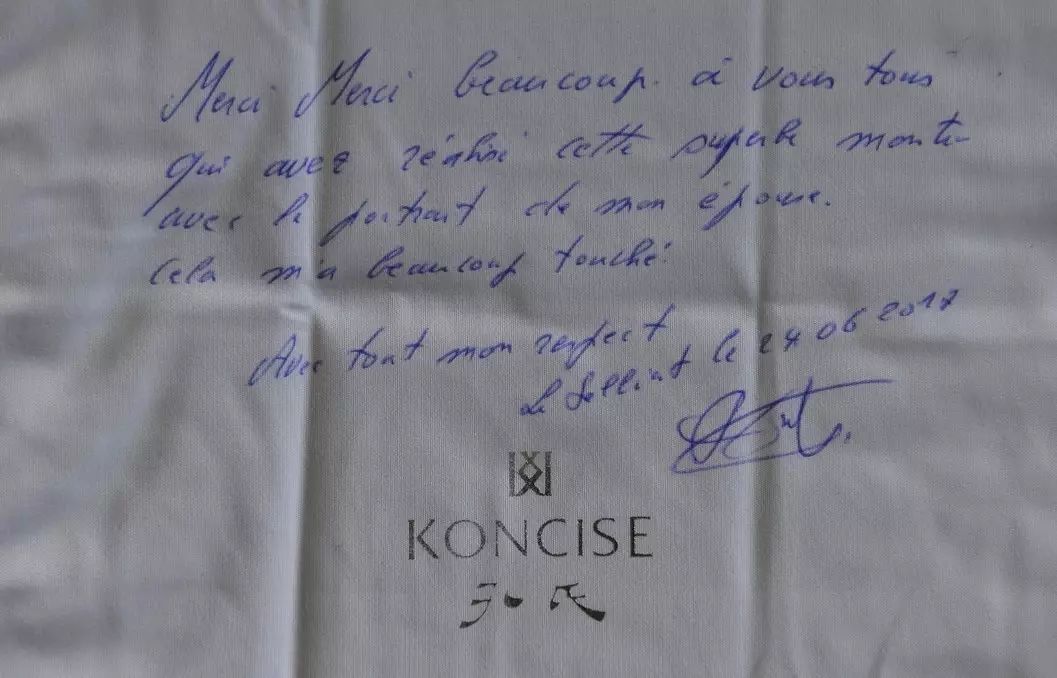 Merci Merci beaucoup. à vous tous
qui avez réalisé cette superbe montre
avec le portrait de mon épouse.
Cela m'a beaucoup touché.
Avec tout mon respect
le 24 06 2017
KONCISE